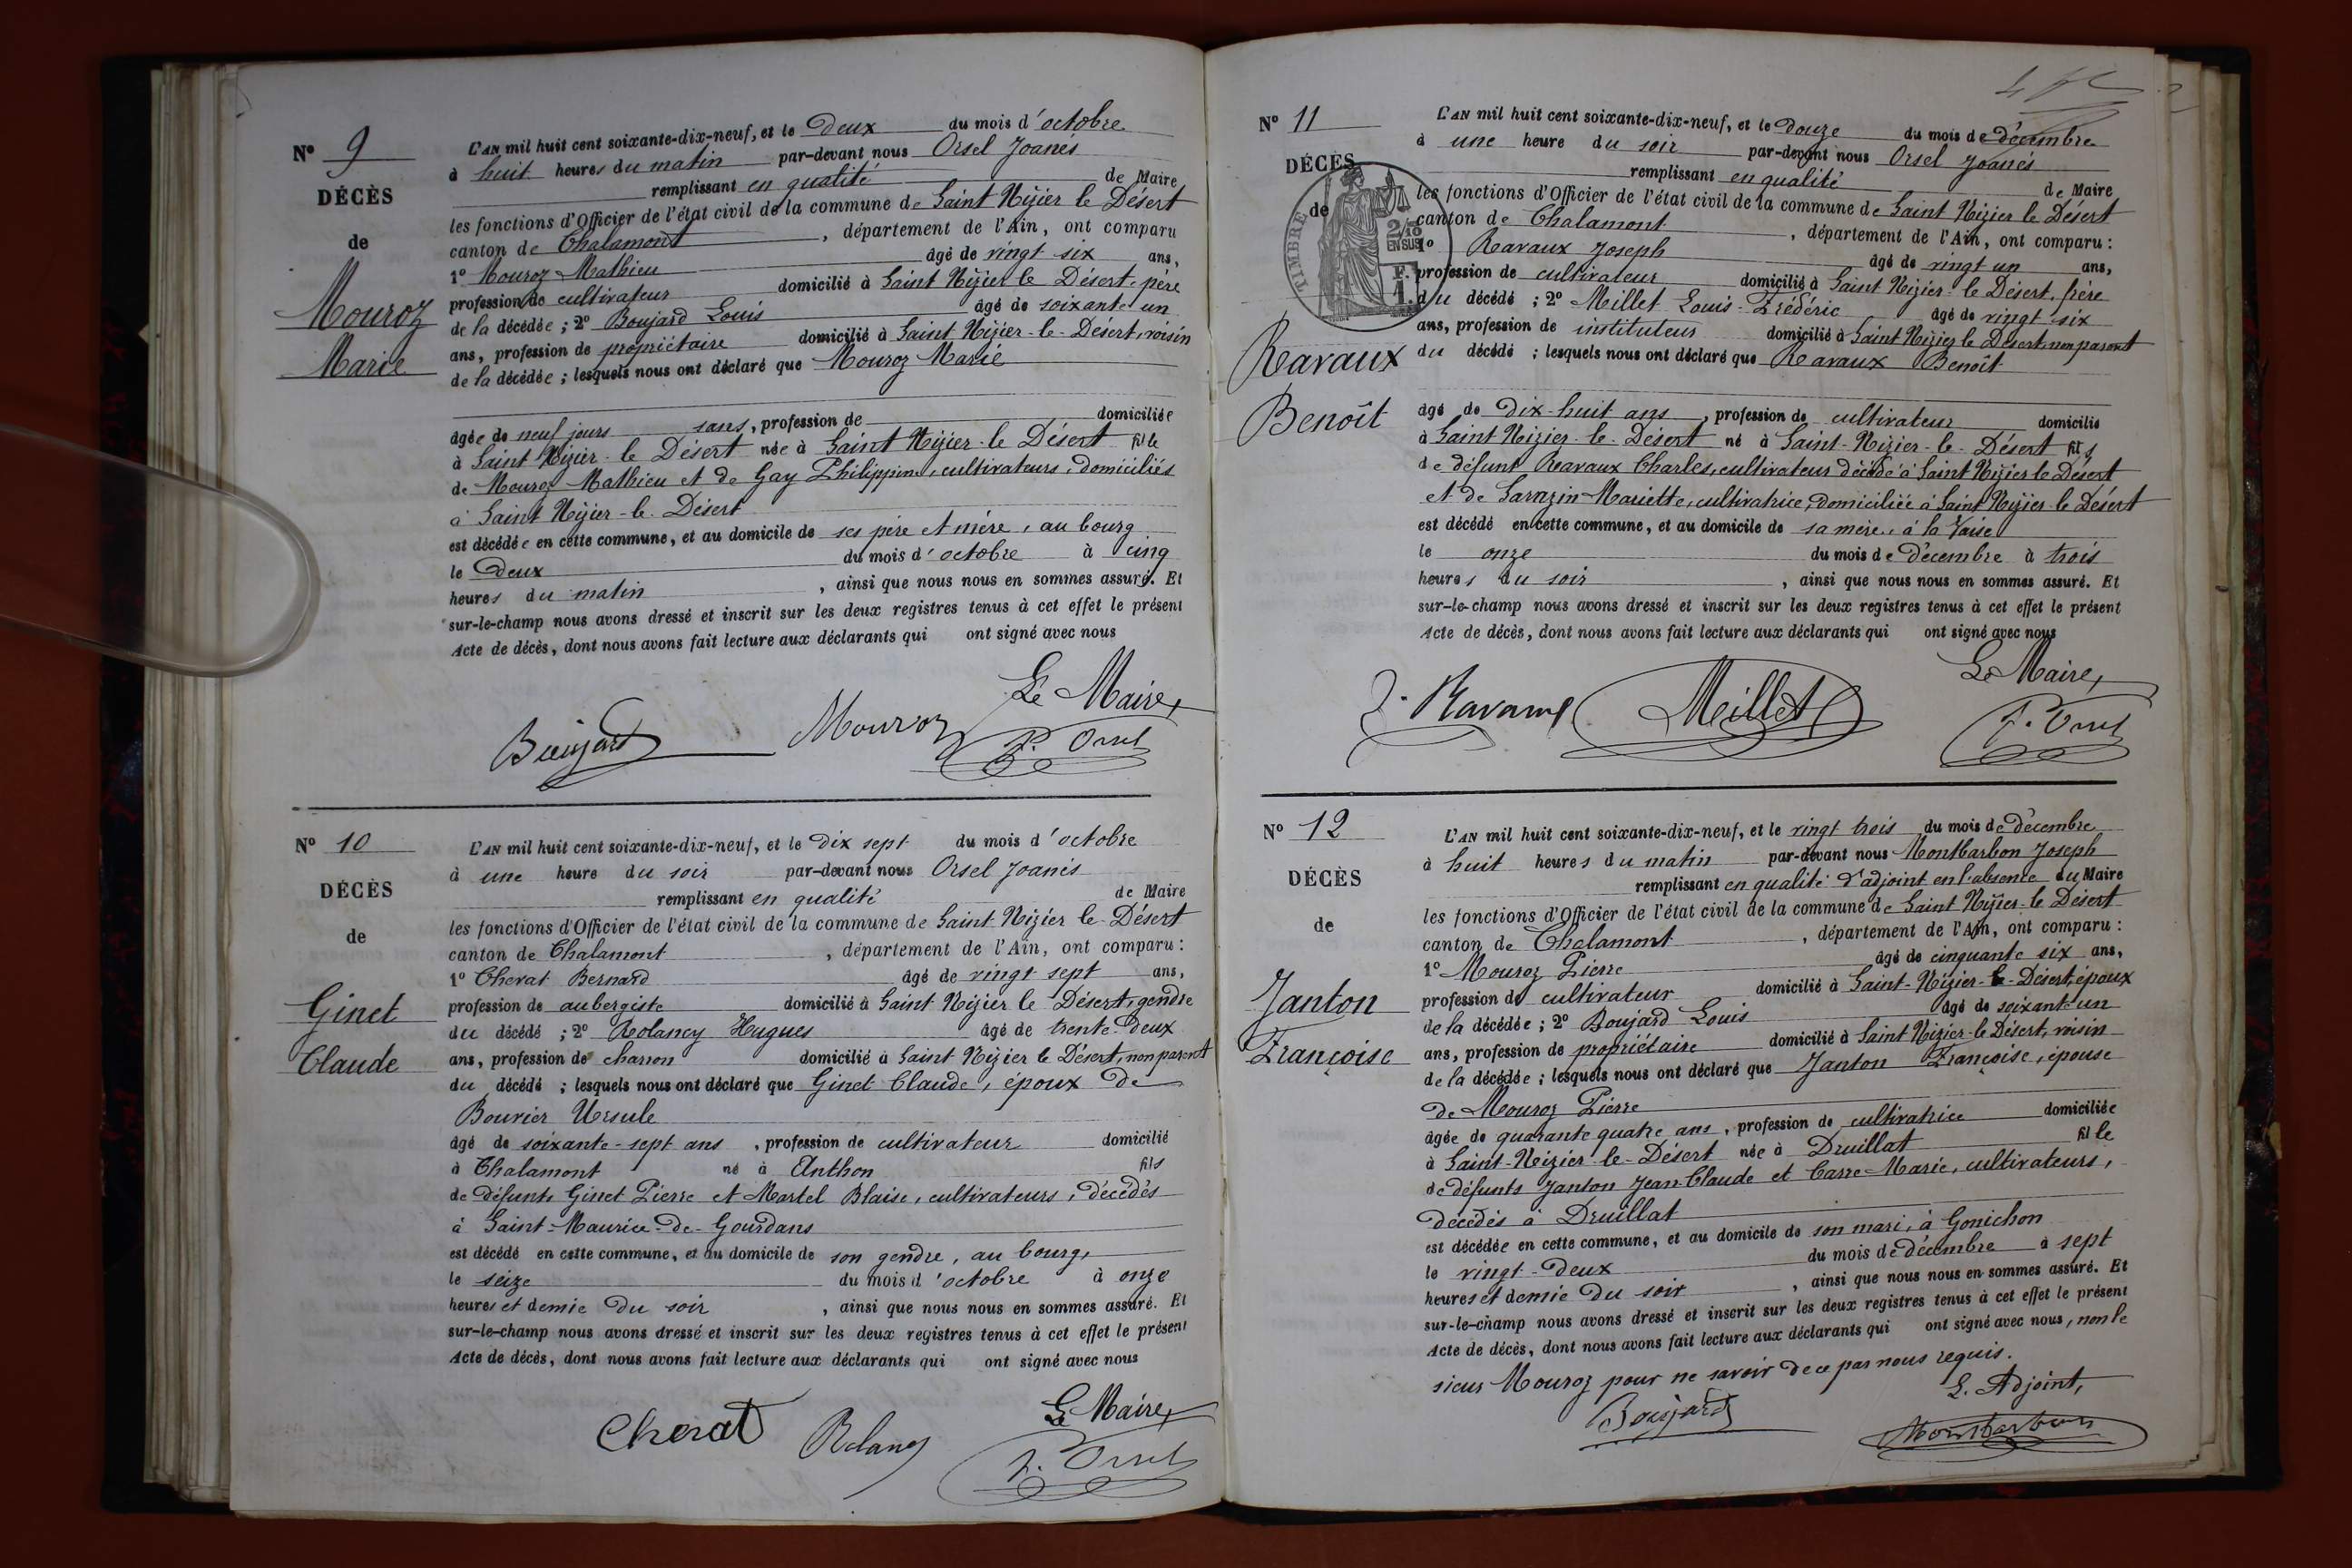 N° 9
DÉCÈS
de
Mouroz
Marie
L'AN mil huit cent soixante-dix-neuf, et le Deux du mois d'octobre
à huit heures du matin par-devant nous Orsel Joanès
remplissant en qualité de Maire
les fonctions d'Officier de l'état civil de la commune de Saint Nizier le Désert
canton de Chalamont, département de l'Ain, ont comparu
1° Mouroz Mathieu âgé de vingt six ans,
profession de cultivateur domicilié à Saint Nizier le Désert, père
de la décédée ; 2° Boujard Louis âgé de soixante un
ans, profession de propriétaire domicilié à Saint Nizier-le-Désert, voisin
de la décédée ; lesquels nous ont déclaré que Mouroz Marie
âgée de neuf jours sans, profession de domiciliée
à Saint Nizier-le Désert née à Saint Nizier-le Désert fille
de Mouroz Mathieu et de Gay Philippine, cultivateurs, domiciliés
à Saint Nizier-le-Désert
est décédée en cette commune, et au domicile de ses père et mère, au bourg
le Deux du mois d'octobre à cinq
heures du matin, ainsi que nous nous en sommes assuré. Et
sur-le-champ nous avons dressé et inscrit sur les deux registres tenus à cet effet le présent
Acte de décès, dont nous avons fait lecture aux déclarants qui ont signé avec nous
Le Maire,
Boujard Mouroz J. Orsel
N° 10
DÉCÈS
de
Ginet
Claude
L'AN mil huit cent soixante-dix-neuf, et le dix sept du mois d'octobre
à une heure du soir par-devant nous Orsel Joanès
remplissant en qualité de Maire
les fonctions d'Officier de l'état civil de la commune de Saint Nizier le Désert
canton de Chalamont, département de l'Ain, ont comparu :
1° Cherat Bernard âgé de vingt sept ans,
profession de aubergiste domicilié à Saint Nizier le Désert, gendre
du décédé ; 2° Rolancy Hugues âgé de trente-deux
ans, profession de charron domicilié à Saint Nizier le Désert, non parent
du décédé ; lesquels nous ont déclaré que Ginet Claude, époux de
Bouvier Ursule
âgé de soixante-sept ans, profession de cultivateur domicilié
à Chalamont né à Anthon fils
de défunts Ginet Pierre et Martel Blaise, cultivateurs, décédés
à Saint-Maurice-de-Gourdans
est décédé en cette commune, et au domicile de son gendre, au bourg,
le seize du mois d'octobre à onze
heures et demie du soir, ainsi que nous nous en sommes assuré. Et
sur-le-champ nous avons dressé et inscrit sur les deux registres tenus à cet effet le présent
Acte de décès, dont nous avons fait lecture aux déclarants qui ont signé avec nous
Le Maire,
Cherat Rolancy J. Orsel
N° 11
DÉCÈS
de
Ravaux
Benoît
TIMBRE
2/10
EN SUS
F.
1.
L'AN mil huit cent soixante-dix-neuf, et le douze du mois de décembre
à une heure du soir par-devant nous Orsel Joanès
remplissant en qualité de Maire
les fonctions d'Officier de l'état civil de la commune de Saint Nizier le Désert
canton de Chalamont, département de l'Ain, ont comparu :
1° Ravaux Joseph âgé de vingt un ans,
profession de cultivateur domicilié à Saint Nizier-le Désert, frère
du décédé ; 2° Millet Louis-Frédéric âgé de vingt six
ans, profession de instituteur domicilié à Saint Nizier le Désert, non parent
du décédé ; lesquels nous ont déclaré que Ravaux Benoît
âgé de Dix-huit ans, profession de cultivateur domicilié
à Saint Nizier-le-Désert né à Saint-Nizier-le-Désert fils
de défunt Ravaux Charles, cultivateur décédé à Saint Nizier le Désert
et de Sarazin Mariette, cultivatrice, domiciliée à Saint Nizier-le Désert
est décédé en cette commune, et au domicile de sa mère, à la Vaise
le onze du mois de décembre à trois
heures du soir, ainsi que nous nous en sommes assuré. Et
sur-le-champ nous avons dressé et inscrit sur les deux registres tenus à cet effet le présent
Acte de décès, dont nous avons fait lecture aux déclarants qui ont signé avec nous
Le Maire,
J. Ravaux Millet J. Orsel
N° 12
DÉCÈS
de
Janton
Françoise
L'AN mil huit cent soixante-dix-neuf, et le vingt trois du mois de décembre
à huit heures du matin par-devant nous Montbarbon Joseph
remplissant en qualité d'adjoint en l'absence du Maire
les fonctions d'Officier de l'état civil de la commune de Saint Nizier-le Désert
canton de Chalamont, département de l'Ain, ont comparu :
1° Mouroz Pierre âgé de cinquante six ans,
profession de cultivateur domicilié à Saint-Nizier-le-Désert, époux
de la décédée ; 2° Boujard Louis âgé de soixante un
ans, profession de propriétaire domicilié à Saint Nizier-le Désert, voisin
de la décédée ; lesquels nous ont déclaré que Janton Françoise, épouse
de Mouroz Pierre
âgée de quarante quatre ans, profession de cultivatrice domiciliée
à Saint-Nizier-le-Désert née à Druillat fille
de défunts Janton Jean-Claude et Carre Marie, cultivateurs,
décédés à Druillat
est décédée en cette commune, et au domicile de son mari, à Gonichon
le vingt-deux du mois de décembre à sept
heures et demie du soir, ainsi que nous nous en sommes assuré. Et
sur-le-champ nous avons dressé et inscrit sur les deux registres tenus à cet effet le présent
Acte de décès, dont nous avons fait lecture aux déclarants qui ont signé avec nous, non le
sieur Mouroz pour ne savoir de ce par nous requis.
L. Adjoint,
Boujard Montbarbon